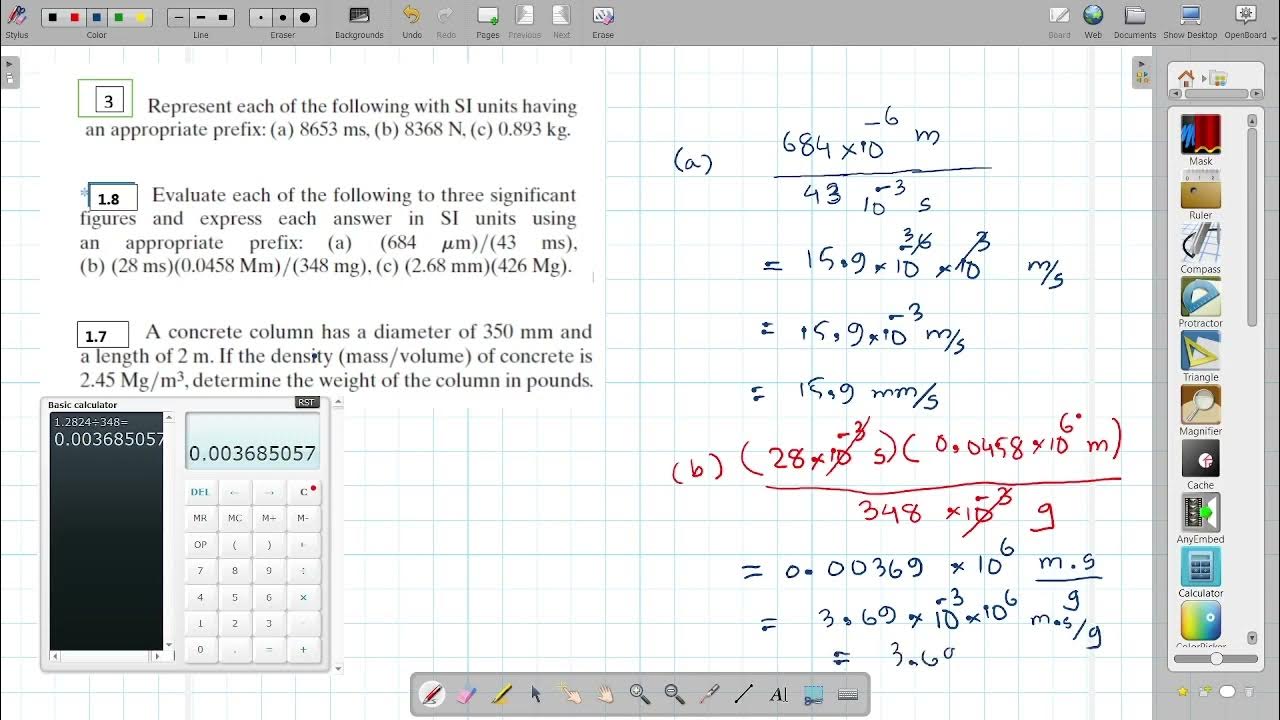 Stylus
Color
Line
Eraser
Backgrounds
Undo
Redo
Pages
Previous
Next
Erase
Board
Web
Documents
Show Desktop
OpenBoard
3 Represent each of the following with SI units having
an appropriate prefix: (a) 8653 ms, (b) 8368 N, (c) 0.893 kg.
*1.8 Evaluate each of the following to three significant
figures and express each answer in SI units using
an appropriate prefix: (a) (684 μm)/(43 ms),
(b) (28 ms)(0.0458 Mm)/(348 mg), (c) (2.68 mm)(426 Mg).
1.7 A concrete column has a diameter of 350 mm and
a length of 2 m. If the density (mass/volume) of concrete is
2.45 Mg/m³, determine the weight of the column in pounds.
Basic calculator
RST
1.2824÷348=
0.003685057
0.003685057
DEL ← → C
MR MC M+ M-
OP ( )
7 8 9 ÷
4 5 6 ×
1 2 3 -
0 . = +
(a) 684 × 10⁻⁶ m
43 10⁻³ s
= 15.9 × 10⁻³6 × 10³ m/s
= 15.9 × 10⁻³ m/s
= 15.9 mm/s
(b) (28 × 10⁻³ s)(0.0458 × 10⁶ m)
348 × 10⁻³ g
= 0.00369 × 10⁶ m.s
g
= 3.69 × 10⁻³ × 10⁶ m.s/g
= 3.6
Mask
Ruler
Compass
Protractor
Triangle
Magnifier
Cache
AnyEmbed
Calculator
ColorPicker
AI